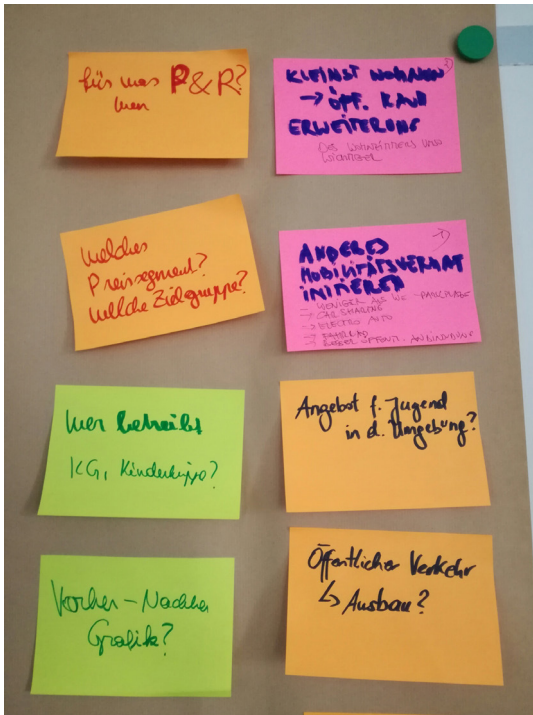 für was P&R?
wen
welches
Preissegment?
welche Zielgruppe?
Wer betreibt
KG, Kinderkrippe?
Vorher-Nachher
Grafik?
KLEINST WOHNEN
→ ÖFF. RAUM
ERWEITERUNG
DES WOHNZIMMERS UMSO
WICHTIGER
ANDERES
MOBILITÄTSVERHALT
INITIIEREN
→ WENIGER ALS WE-PARKPLÄTZE
→ CAR SHARING
→ ELECTRO AUTO
→ FAHRRAD
→ BESSER ÖFFENTL. ANBINDUNG
Angebot f. Jugend
in d. Umgebung?
Öffentlicher Verkehr
↳ Ausbau?